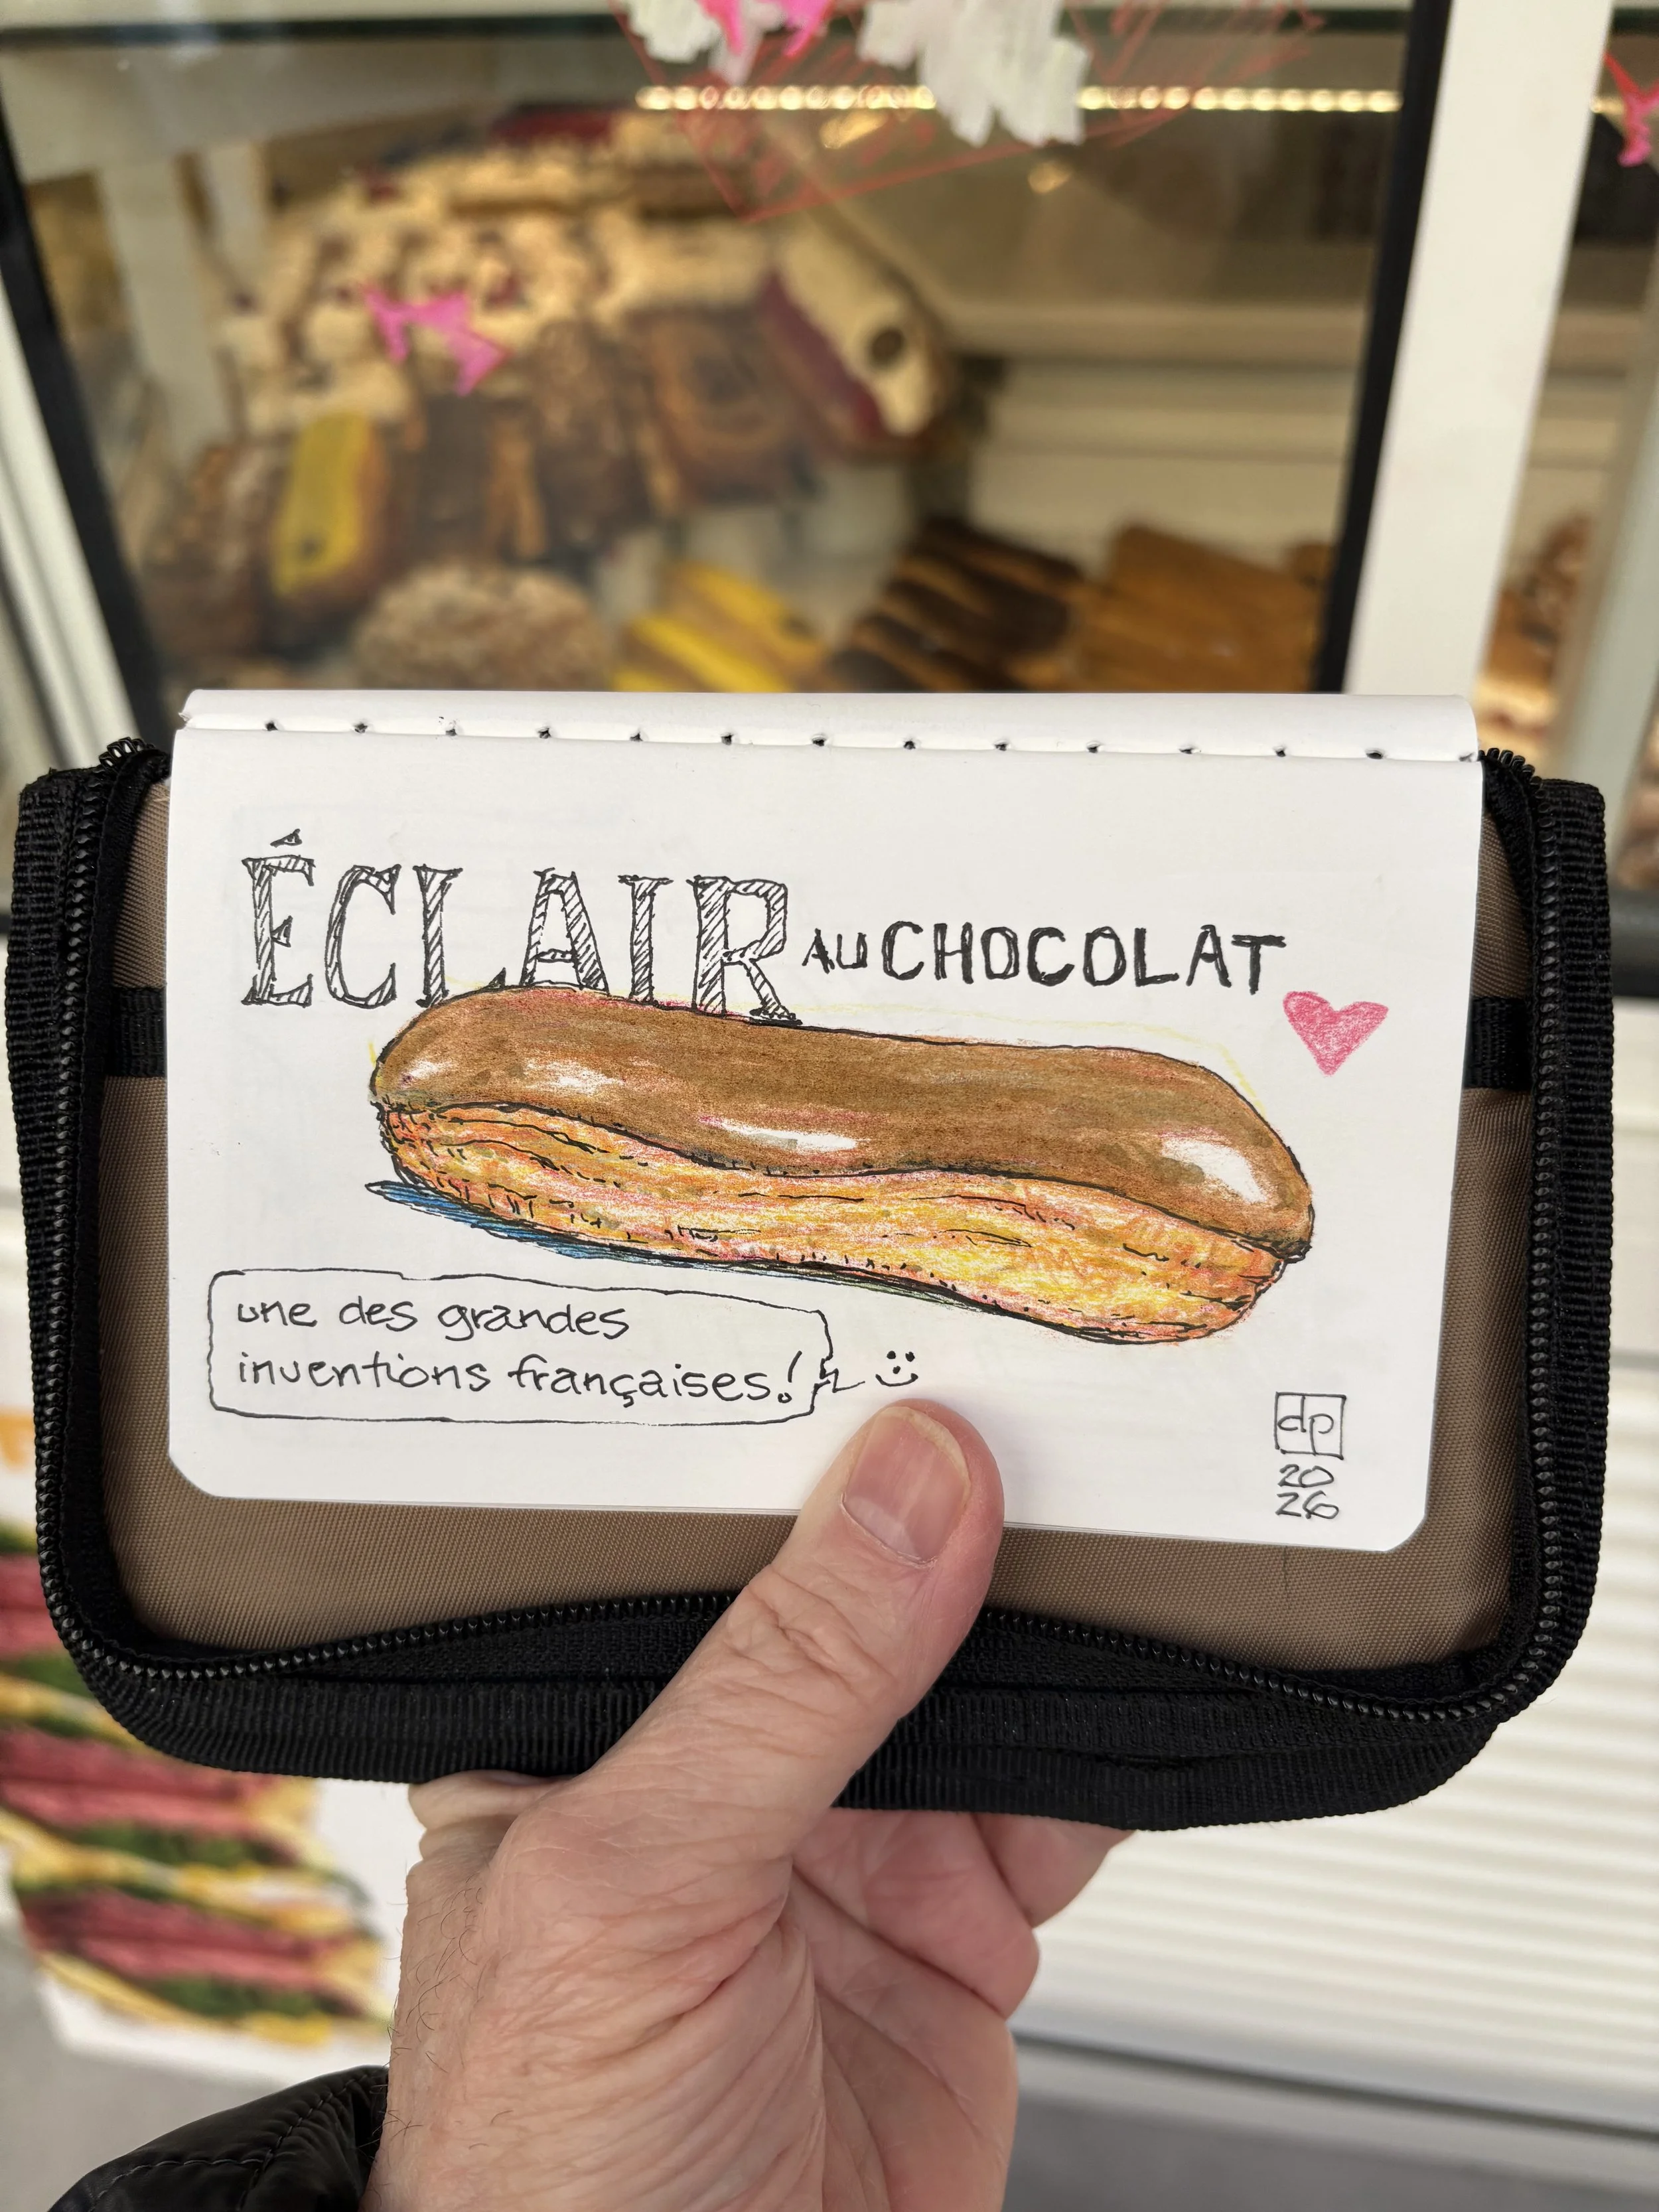 ÉCLAIR AU CHOCOLAT
une des grandes
inventions françaises!
dp
20
26